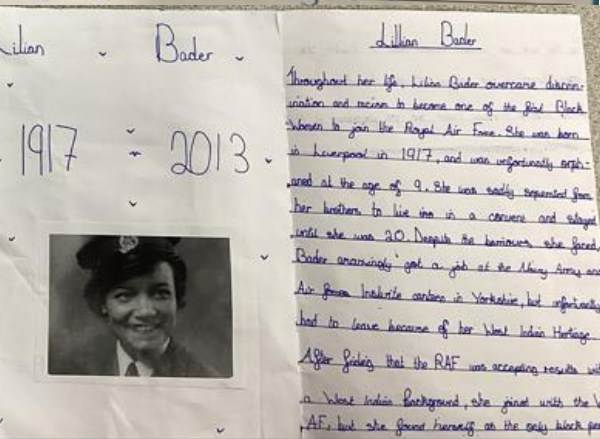 Lilian Bader
1917 - 2013
Lillian Bader
Throughout her life, Lilian Bader overcame discrim-
ination and racism to become one of the first Black
Women to join the Royal Air Force. She was born
in Liverpool in 1917, and was unfortunatly orph-
aned at the age of 9. She was sadly seperated from
her brothers to live in a convent and stayed
until she was 20. Despite the barriours she faced,
Bader amazingly got a job at the Navy Army and
Air Force Institute canteen in Yorkshire, but unfortunatly
had to leave because of her West Indian Heritage.
After finding that the RAF was accepting results
a West Indian Background, she joined with the W
AF, but she found herself as the only black